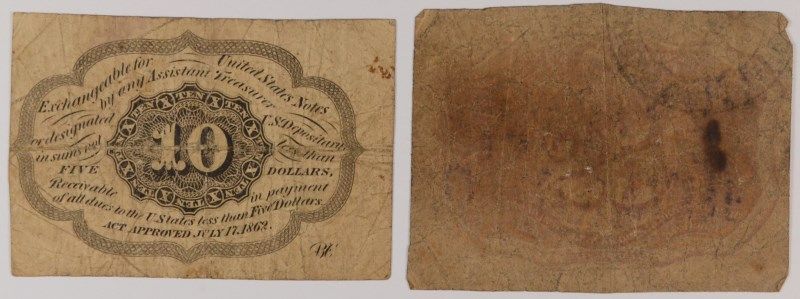 Exchangeable for United States Notes
by any Assistant Treasurer
or designated U.S. Depositary
in sums not less than
FIVE DOLLARS,
Receivable in payment
of all dues to the U. States less than Five Dollars.
ACT APPROVED JULY 17, 1862.
TEN X TEN X TEN
10